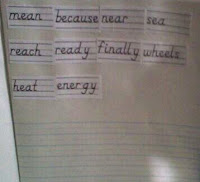 mean because near sea
reach ready finally wheels
heat energy